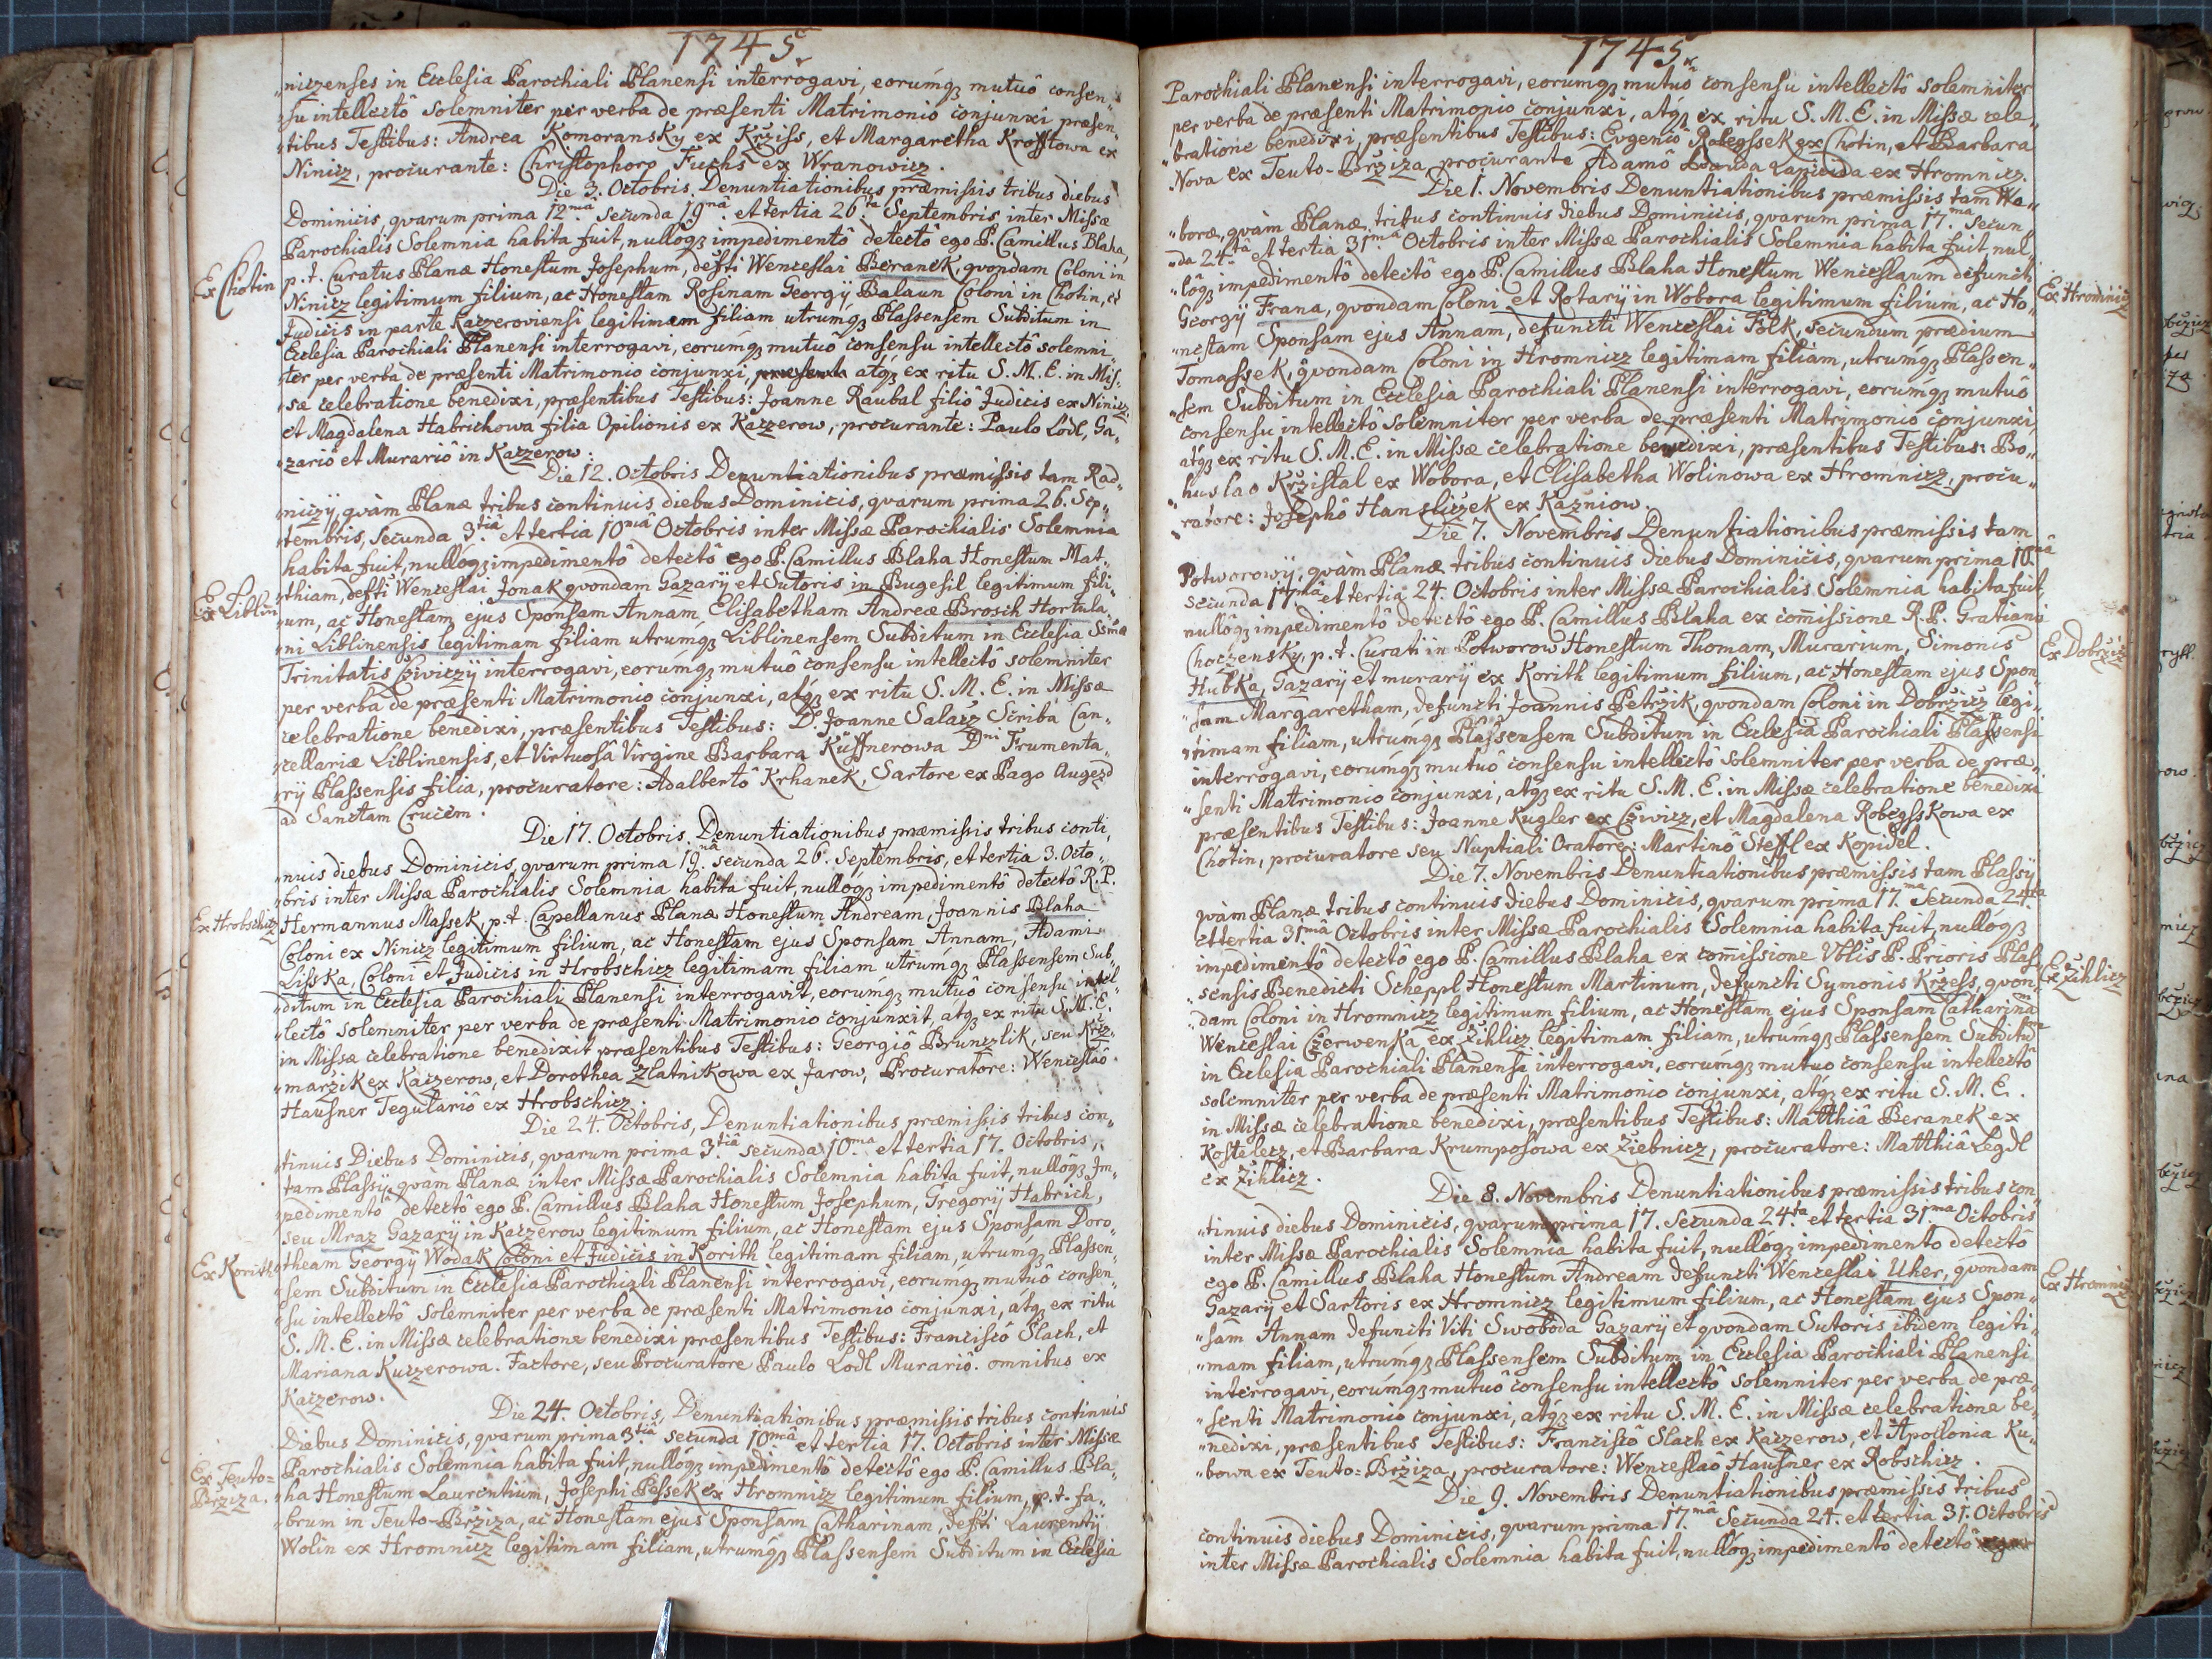 1745.
„niczenses in Ecclesia Parochiali Planensi interrogavi, eorumq; mutuô consen„
„su intellectô solemniter per verba de præsenti Matrimonio conjunxi præsen„
„tibus Testibus: Andrea Komoransky ex Kržiss, et Margaretha Krofftowa ex
Ninicz, procurante: Christophoro Fuchs ex Wranowicz.
Die 3. Octobris, Denuntiationibus præmissis tribus diebus
Dominicis, qvarum prima 12mâ secunda 19nâ et tertia 26ta Septembris inter Missæ
Parochialis Solemnia habita fuit, nullôq; impedimentô detectô ego P. Camillus Blaha,
Ex Chotin
p. t. Curatus Planæ Honestum Josephum, defti Wenceslai Beranek, qvondam Coloni in
Ninicz legitimum filium, ac Honestam Rosinam Georgij Balaun Coloni in Chotin, et
Judicis in parte Kaczeroviensi legitimam filiam utrumq; Plassensem Subditum in
Ecclesia Parochiali Planensi interrogavi, eorumq; mutuo consensu intellectô solemni„
„ter per verba de præsenti Matrimonio conjunxi, atq; ex ritu S. M. E. in Mis„
„sæ celebratione benedixi, præsentibus Testibus: Joanne Raubal filiô Judicis ex Ninicz
et Magdalena Habrichowa filia Opilionis ex Kaczerow, procurante: Paulo Lodl, Ga„
„zariô et Murariô in Kaczerow.
Die 12. Octobris Denuntiationibus præmissis tam Rad„
„niczij, qvàm Planæ tribus continuis diebus Dominicis, qvarum prima 26. Sep„
„tembris, secunda 3tiâ et tertia 10mâ Octobris inter Missæ Parochialis Solemnia
habita fuit, nullôq; impedimentô detectô ego P. Camillus Blaha Honestum Mat„
Ex Liblin
„thiam, defti Wenceslai Jonak qvondam Gazarij et Sutoris in Bugesil legitimum fili„
„um, ac Honestam ejus Sponsam Annam, Elisabetham Andreæ Brosch Hortula„
„ni Liblinensis legitimam filiam utrumq; Liblinensem Subditum in Ecclesia Ssmæ
Trinitatis Cziwiczij interrogavi, eorumq; mutuô consensu intellectô solemniter
per verba de præsenti Matrimonio conjunxi, atq; ex ritu S. M. E. in Missæ
celebratione benedixi, præsentibus Testibus: D. Joanne Salacz Scriba Can„
„cellariæ Liblinensis, et Virtuosâ Virgine Barbara Küffnerowa Dni Frumenta„
„rij Plassensis filia, procuratore: Adalbertô Krhanek, Sartore ex Pago Augezd
ad Sanctam Crucem.
Die 17. Octobris. Denuntiationibus præmissis tribus conti„
„nuis diebus Dominicis, qvarum prima 19nâ secunda 26. Septembris, et tertia 3. Octo„
„bris inter Missæ Parochialis Solemnia habita fuit, nullôq; impedimentô detectô R. P.
Ex Hrobschitz
Hermannus Massek, p. t. Capellanus Planæ Honestum Andream, Joannis Blaha
Coloni ex Ninicz legitimum filium, ac Honestam ejus Sponsam Annam, Adami
Lisska, Coloni et Judicis in Hrobschicz legitimam filiam utrumq; Plassensem Sub„
„ditum in Ecclesia Parochiali Planensi interrogavit, eorumq; mutuô consensu intel„
„lectô solemniter per verba de præsenti Matrimonio conjunxit, atq; ex ritu S. M. E.
in Missæ celebratione benedixit præsentibus Testibus: Georgiô Brunczlik, seu Krž„
„maržik ex Kaczerow, et Dorothea Zlatnikowa ex Jarow, Procuratore: Wenceslao
Hausner Tegulariô ex Hrobschicz.
Die 24. Octobris, Denuntiationibus præmissis tribus con„
„tinuis Diebus Dominicis, qvarum prima 3tiâ secunda 10ma et tertia 17. Octobris,
tam Plassij, qvàm Planæ inter Missæ Parochialis Solemnia habita fuit, nullôq; Im„
„pedimentô detectô ego P. Camillus Blaha Honestum Josephum, Gregorij Habrich,
seu Mraz Gazarij in Kaczerow legitimum filium, ac Honestam ejus Sponsam Doro„
Ex Korith
„theam Georgij Wodak Coloni et Judicis in Korith legitimam filiam, utrumq; Plassen„
„sem Subditum in Ecclesia Parochiali Planensi interrogavi, eorumq; mutuô consen„
„su intellectô solemniter per verba de præsenti Matrimonio conjunxi, atq; ex ritu
S. M. E. in Missæ celebratione benedixi præsentibus Testibus: Franciscô Slach, et
Mariana Kuczerowa. Factore, seu Procuratore Paulo Lodl Murariô. omnibus ex
Kaczerow.
Die 24. Octobris, Denuntiationibus præmissis tribus continuis
Diebus Dominicis, qvarum prima 3tiâ secunda 10mâ et tertia 17. Octobris inter Missæ
Ex Teuto=
Bržiza.
Parochialis Solemnia habita fuit, nullôq; impedimentô detectô ego P. Camillus Bla„
„ha Honestum Laurentium, Josephi Pessek ex Hromnicz legitimum filium, p. t. fa„
„brum in Teuto-Bržiza, ac Honestam ejus Sponsam Catharinam, defti Laurentij
Wolin ex Hromnicz legitimam filiam, utrumq; Plassensem Subditum in Ecclesia
1745.
Parochiali Planensi interrogavi, eorumq; mutuô consensu intellectô solemniter
per verba de præsenti Matrimonio conjunxi, atq; ex ritu S. M. E. in Missæ cele„
„bratione benedixi, præsentibus Testibus: Evgeniô Robegssek ex Chotin, et Barbara
Nova ex Teuto-Bržiza, procurante Adamô Lapicida ex Hromnicz.
Die 1. Novembris Denuntiationibus præmissis tam Wo„
„boræ, qvàm Planæ tribus continuis diebus Dominicis, qvarum prima 17ma secun„
„da 24tâ et tertia 31mâ Octobris inter Missæ Parochialis Solemnia habita fuit, nul„
„lôq; impedimentô detectô ego P. Camillus Blaha Honestum Wenceslaum defuncti
Ex Hromnicz
Georgij Frana, qvondam Coloni et Rotarij in Wobora legitimum filium, ac Ho„
„nestam Sponsam ejus Annam, defuncti Wenceslai Polk, secundum prædium
Tomassek, qvondam Coloni in Hromnicz legitimam filiam, utrumq; Plassen„
„sem Subditum in Ecclesia Parochiali Planensi interrogavi, eorumq; mutuô
consensu intellectô solemniter per verba de præsenti Matrimonio conjunxi,
atq; ex ritu S. M. E. in Missæ celebratione benedixi, præsentibus Testibus: Bo„
„huslao Kržistal ex Wobora, et Elisabetha Wolinowa ex Hromnicz, procu„
„ratore: Josephô Hansliczek ex Kazniow.
Die 7. Novembris Denuntiationibus præmissis tam
Potworowij, qvàm Planæ tribus continuis diebus Dominicis, qvarum prima 10mâ
secunda 17mâ et tertia 24. Octobris inter Missæ Parochialis Solemnia habita fuit,
nullôq; impedimentô detectô ego P. Camillus Blaha ex com̄issione R. P. Gratiani
Ex Dobržicz
Choczensky, p. t. Curati in Potworow Honestum Thomam, Murarium, Simonis
Hubka, Gazarij et murarij ex Korith legitimum filium, ac Honestam ejus Spon„
„sam Margaretham, defuncti Joannis Petržik, qvondam Coloni in Dobržicz legi„
„timam filiam, utrumq; Plassensem Subditum in Ecclesia Parochiali Plassensi
interrogavi, eorumq; mutuô consensu intellectô solemniter per verba de præ„
„senti Matrimonio conjunxi, atq; ex ritu S. M. E. in Missæ celebratione benedixi
præsentibus Testibus: Joanne Kugler ex Cziwicz, et Magdalena Robegsskowa ex
Chotin, procuratore seu Nuptiali Oratore: Martinô Steffl ex Kopidel.
Die 7. Novembris Denuntiationibus præmissis tam Plassij
qvàm Planæ tribus continuis diebus Dominicis, qvarum prima 17ma secunda 24ta
et tertia 31mâ Octobris inter Missæ Parochialis Solemnia habita fuit, nullôq;
impedimentô detectô ego P. Camillus Blaha ex com̄issione Vblis P. Prioris Plas„
Ex Žihlicz
„sensis Benedicti Scheppl Honestum Martinum, defuncti Symonis Kržess, qvon„
„dam Coloni in Hromnicz legitimum filium, ac Honestam ejus Sponsam Catharinam
Wenceslai Czerwenka ex Žihlicz legitimam filiam, utrumq; Plassensem Subditum
in Ecclesia Parochiali Planensi interrogavi, eorumq; mutuo consensu intellectô
solemniter per verba de præsenti Matrimonio conjunxi, atq; ex ritu S. M. E.
in Missæ celebratione benedixi, præsentibus Testibus: Matthiâ Beranek ex
Kostelecz, et Barbara Krumposowa ex Žiebnicz, procuratore: Matthiâ Legdl
ex Žihlicz.
Die 8. Novembris Denuntiationibus præmissis tribus con„
„tinuis diebus Dominicis, qvarum prima 17. secunda 24ta et tertia 31ma Octobris
inter Missæ Parochialis Solemnia habita fuit, nullôq; impedimento detectô
Ex Hromnicz
ego P. Camillus Blaha Honestum Andream defuncti Wenceslai Uher, qvondam
Gazarij et Sartoris ex Hromnicz legitimum filium, ac Honestam ejus Spon„
„sam Annam defuncti Viti Swoboda Gazarij et qvondam Sutoris ibidem legiti„
„mam filiam, utrumq; Plassensem Subditum in Ecclesia Parochiali Planensi
interrogavi, eorumq; mutuô consensu intellectô solemniter per verba de præ„
„senti Matrimonio conjunxi, atq; ex ritu S. M. E. in Missæ celebratione be„
„nedixi, præsentibus Testibus: Franciscô Slach ex Kaczerow, et Apollonia Ku„
„bowa ex Teuto=Bržiza, procuratore: Wenceslao Hausner ex Robschicz.
Die 9. Novembris Denuntiationibus præmissis tribus
continuis diebus Dominicis, qvarum prima 17mâ secunda 24. et tertia 31. Octobris
inter Missæ Parochialis Solemnia habita fuit, nullôq; impedimentô detectô